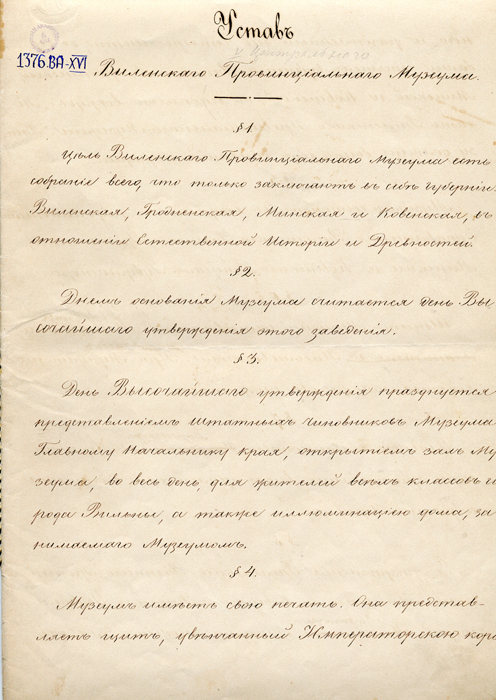 Уставъ
1376.BA-XVI
Виленскаго Провинціальнаго Музеума.
§1.
Цѣль Виленскаго Провинціальнаго Музеума есть
собраніе всего, что только заключаютъ въ себѣ Губерніи
Виленская, Гродненская, Минская и Ковенская, въ
отношеніи Естественной Исторіи и Древностей.
§2.
Днемъ основанія Музеума считается день Вы
сочайшаго утвержденія этого заведенія.
§3.
День Высочайшаго утвержденія празднуется
представленіемъ штатныхъ чиновниковъ Музеума
Главному Начальнику края, открытіемъ залъ Му
зеума, во весь день, для жителей всѣхъ классовъ го
рода Вильны, а также иллюминаціею дома, за
нимаемаго Музеумомъ.
§4.
Музеумъ имѣетъ свою печать. Она представ-
ляетъ щитъ, увѣнчанный Императорскою коро